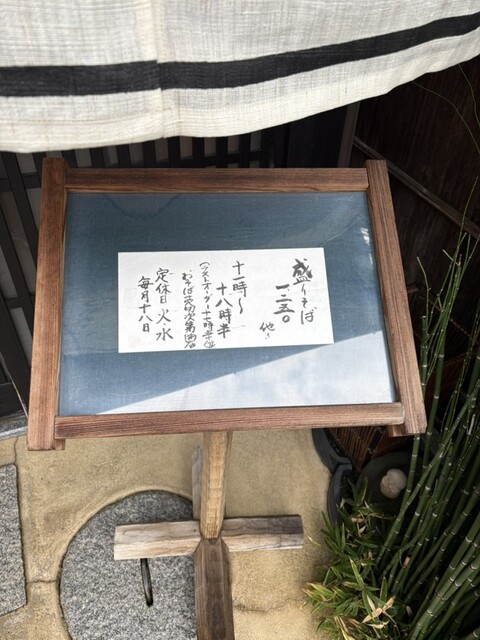 盛りそば
一・二五〇
他々
十一時〜
十八時半
(ラストオーダー十七時半)
おそば売切次第閉店
定休日 火・水
毎月十八日